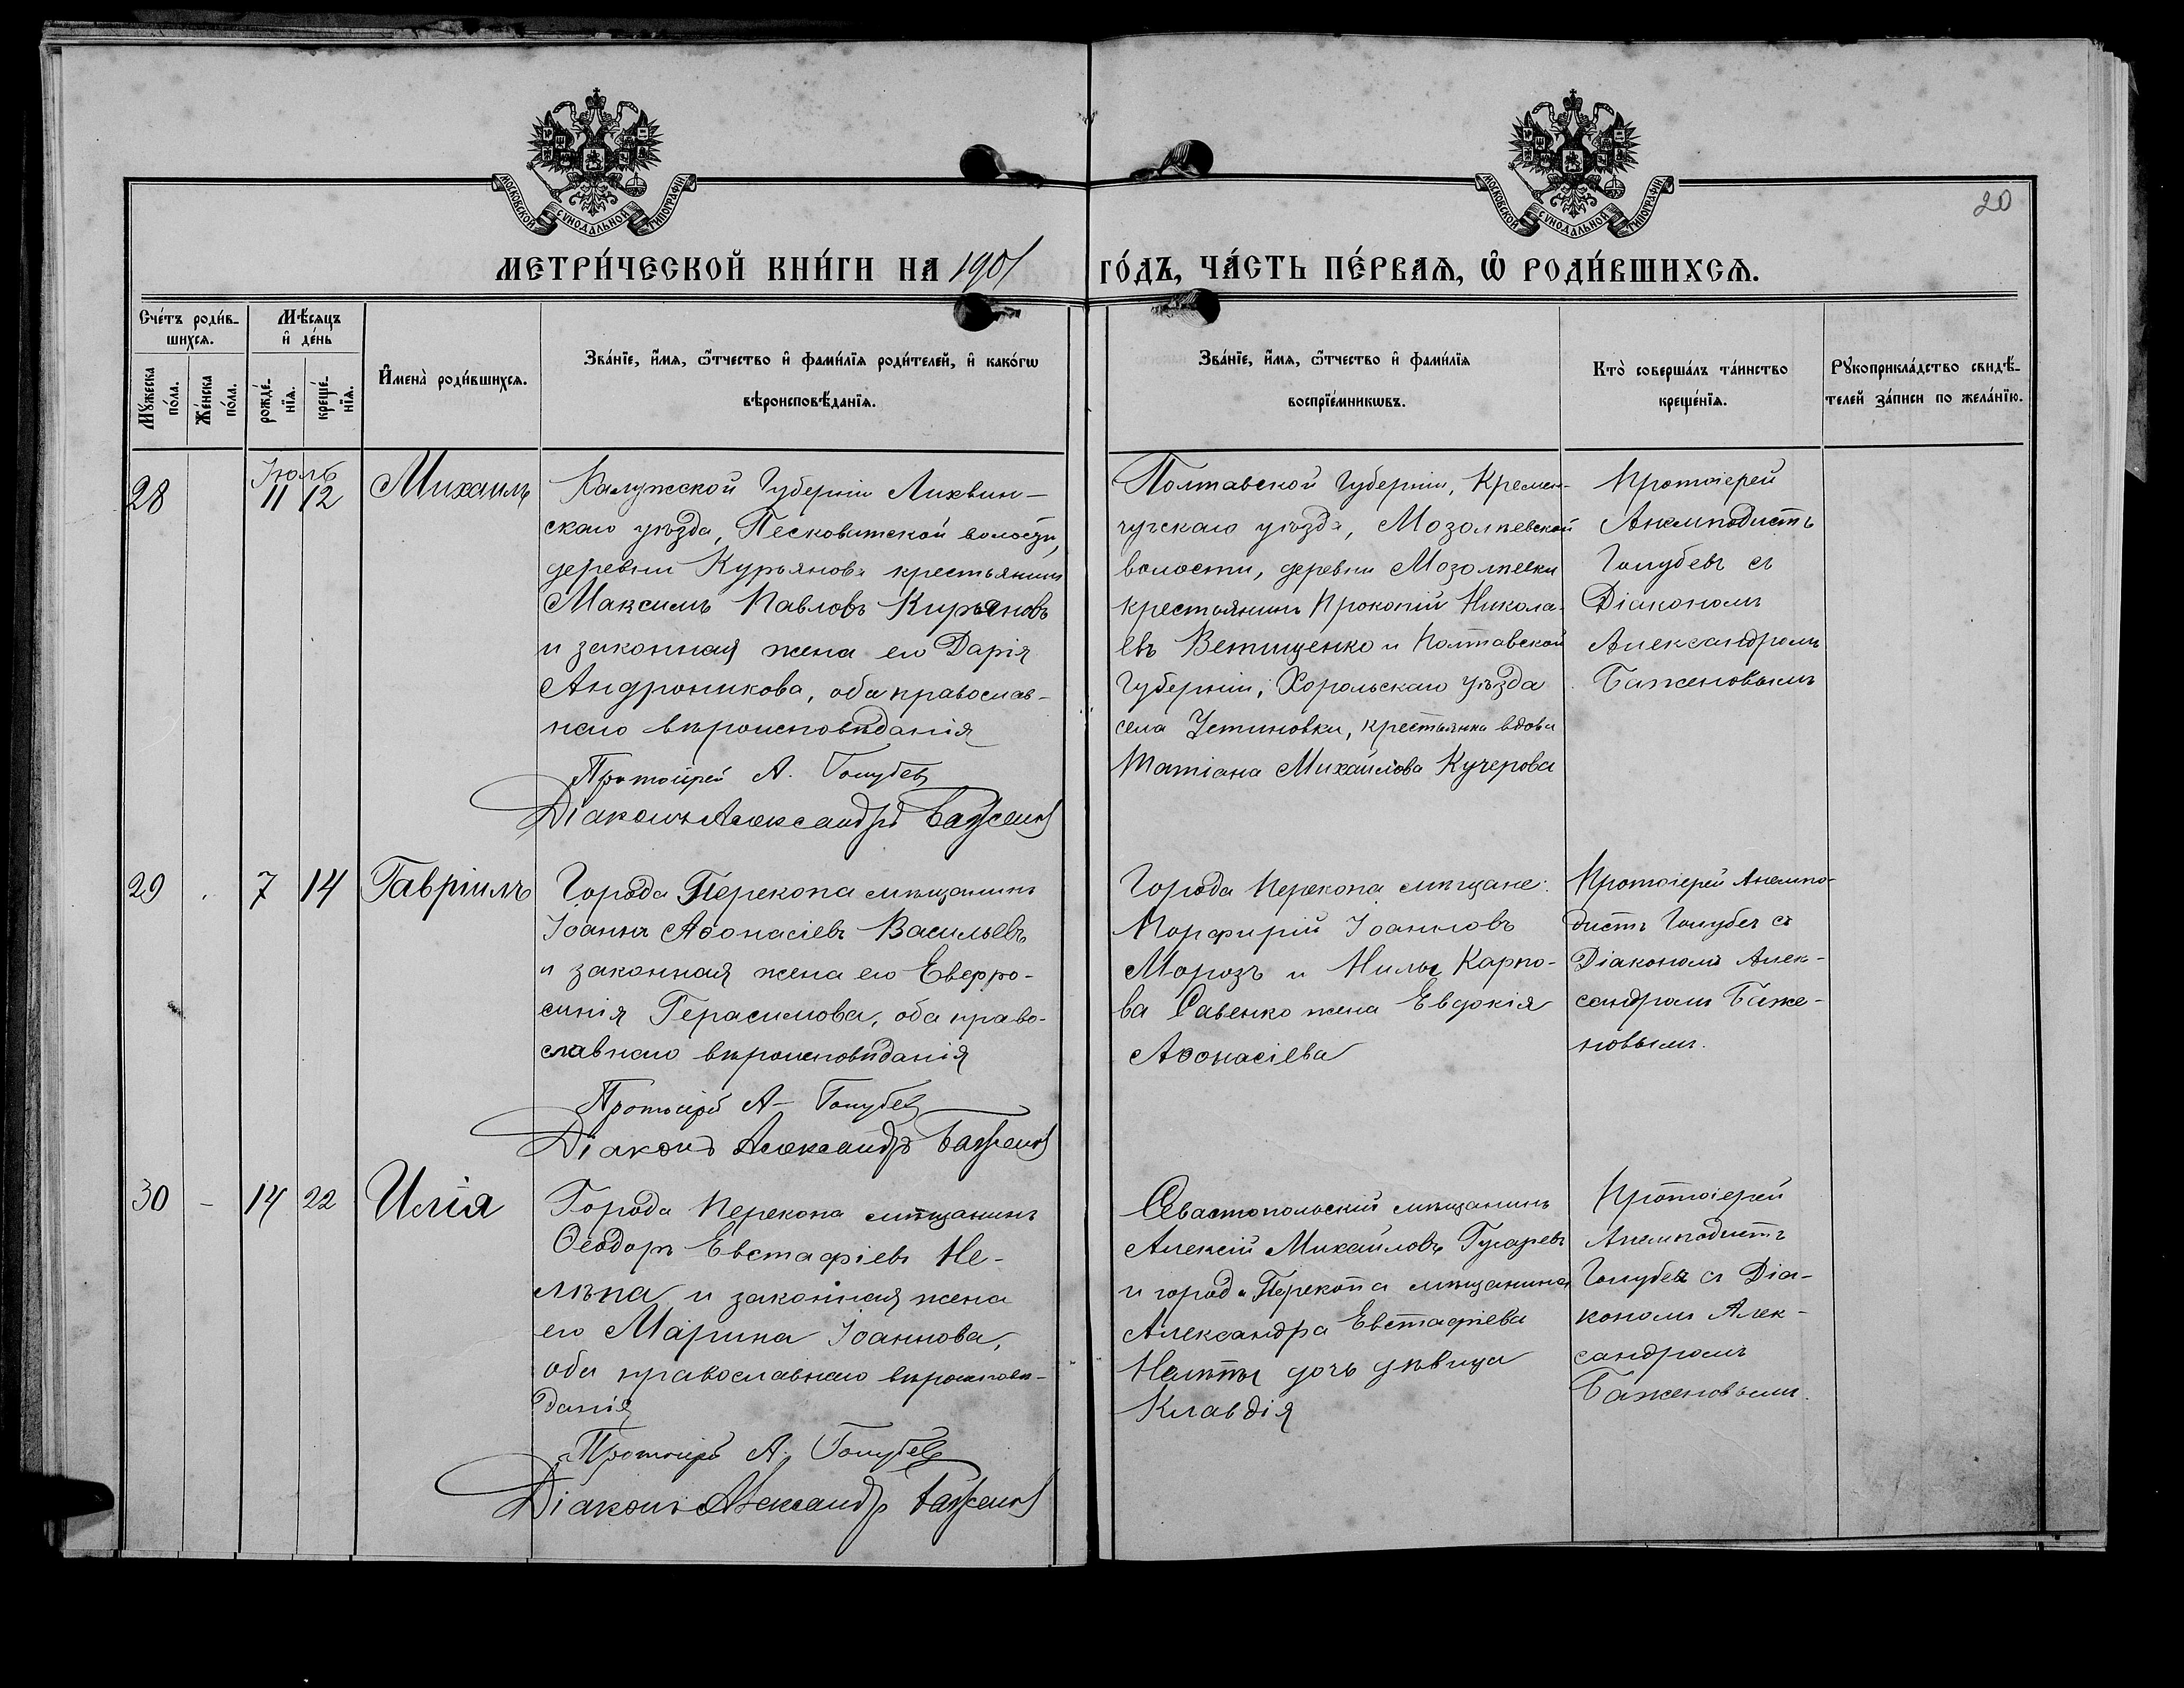 МОСКОВСКОЙ СѴНОДАЛЬНОЙ ТИПОГРАФІИ
МОСКОВСКОЙ СѴНОДАЛЬНОЙ ТИПОГРАФІИ
20
МЕТРИ́ЧЕСКОЙ КНИ́ГИ НА 1901 ГО́ДЪ, ЧА́СТЬ ПЕ́РВАѦ, Ѽ РОДИ́ВШИХСѦ.
Сче́тъ роди́в-
шихсѧ.
Мꙋ́жеска
по́ла.
Же́нска
по́ла.
Мѣ́сѧцъ
и҆ де́нь
рожде́-
нїѧ.
креще́-
нїѧ.
И҆мена̀ роди́вшихсѧ.
Зва́нїе, и҆́мѧ, ѻ҆́тчество и҆ фами́лїѧ роди́телей, и҆ како́гѡ
вѣроисповѣ́данїѧ.
Зва́нїе, и҆́мѧ, ѻ҆́тчество и҆ фами́лїѧ
воспрїе́мникѡвъ.
Кто̀ соверша́лъ та́инство
креще́нїѧ.
Рꙋкоприкла́дство свидѣ́-
телей за́писи по жела́нїю.
28
Іюль
11 12
Михаилъ
Калужской Губерніи Лихвин-
скаго уѣзда, Песковатской волости,
деревни Курьянова крестьянинъ
Максимъ Павловъ Кирьяновъ
и законная жена его Дарія
Андроникова, оба православ-
наго вѣроисповѣданія
Протоіерей А. Голубев
Діаконъ Александръ Баженов
Полтавской Губерніи, Кремен-
чугскаго уѣзда, Мозолѣевской
волости, деревни Мозолѣевки
крестьянинъ Прокопій Никола-
евъ Ветищенко и Полтавской
Губерніи, Хорольскаго уѣзда
села Устиновки, крестьянка вдова
Татіана Михайлова Кучерова
Протоіерей
Анемподистъ
Голубевъ съ
Діакономъ
Александромъ
Баженовымъ
29 7 14
Гавріилъ
Города Перекопа мѣщанинъ
Іоаннъ Аѳонасіевъ Васильевъ
и законная жена его Евфро-
синія Герасимова, оба право-
славнаго вѣроисповѣданія
Протоіерей А. Голубев
Діаконъ Александръ Баженов
Города Перекопа мѣщане:
Порфирій Іоанновъ
Морозъ и Нилы Карпо-
ва Савенко жена Евдокія
Аѳонасіева
Протоіерей Анемпо-
дистъ Голубевъ съ
Діакономъ Алек-
сандромъ Баже-
новымъ.
30 - 14 22
Илія
Города Перекопа мѣщанинъ
Ѳеодоръ Евстафіевъ Не-
лѣпа и законная жена
его Марина Іоаннова,
оба православнаго вѣроисповѣ-
данія
Протоіерей А. Голубев
Діаконъ Александръ Баженов
Севастопольскій мѣщанинъ
Алексій Михайловъ Гугаревъ
и города Перекопа мѣщанина
Александра Евстафіева
Нелѣпы дочь дѣвица
Клавдія
Протоіерей
Анемподистъ
Голубевъ съ Діа-
кономъ Алек-
сандромъ
Баженовымъ.